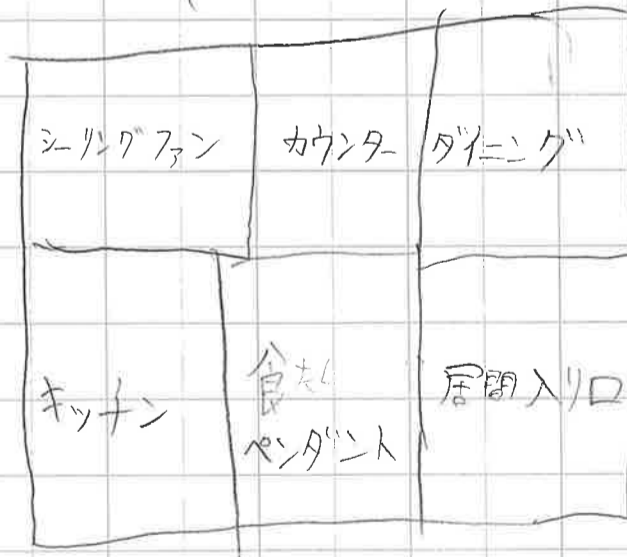 シーリングファン
カウンター
ダイニング
キッチン
食たく
ペンダント
居間入リ口